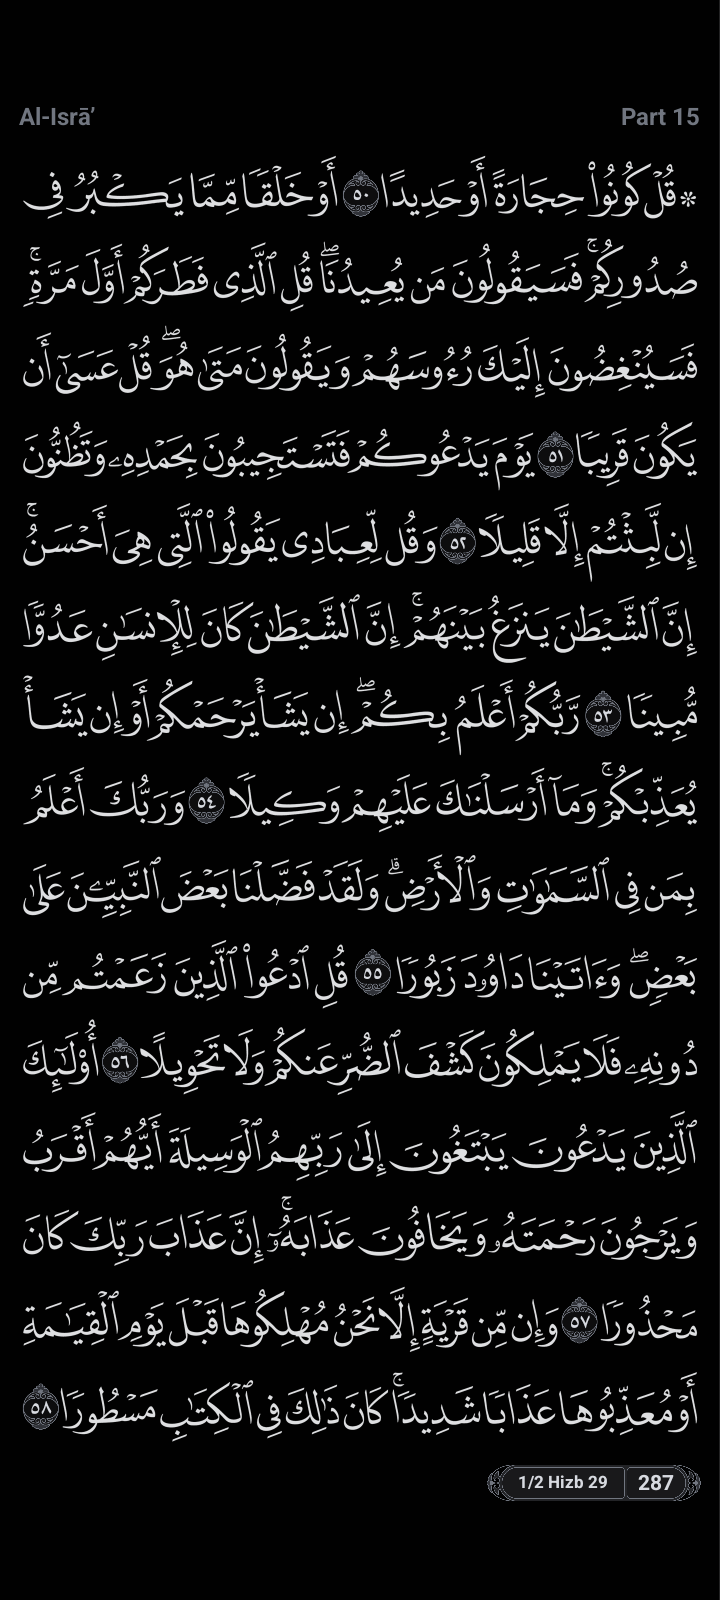 Al-Isrā’
Part 15
۞ قُلۡ كُونُواْ حِجَارَةً أَوۡ حَدِيدًا ٥٠ أَوۡ خَلۡقٗا مِّمَّا يَكۡبُرُ فِي
صُدُورِكُمۡۚ فَسَيَقُولُونَ مَن يُعِيدُنَاۖ قُلِ ٱلَّذِي فَطَرَكُمۡ أَوَّلَ مَرَّةٖۚ
فَسَيُنۡغِضُونَ إِلَيۡكَ رُءُوسَهُمۡ وَيَقُولُونَ مَتَىٰ هُوَۖ قُلۡ عَسَىٰٓ أَن
يَكُونَ قَرِيبٗا ٥١ يَوۡمَ يَدۡعُوكُمۡ فَتَسۡتَجِيبُونَ بِحَمۡدِهِۦ وَتَظُنُّونَ
إِن لَّبِثۡتُمۡ إِلَّا قَلِيلٗا ٥٢ وَقُل لِّعِبَادِي يَقُولُواْ ٱلَّتِي هِيَ أَحۡسَنُۚ
إِنَّ ٱلشَّيۡطَٰنَ يَنزَغُ بَيۡنَهُمۡۚ إِنَّ ٱلشَّيۡطَٰنَ كَانَ لِلۡإِنسَٰنِ عَدُوّٗا
مُّبِينٗا ٥٣ رَّبُّكُمۡ أَعۡلَمُ بِكُمۡۖ إِن يَشَأۡ يَرۡحَمۡكُمۡ أَوۡ إِن يَشَأۡ
يُعَذِّبۡكُمۡۚ وَمَآ أَرۡسَلۡنَٰكَ عَلَيۡهِمۡ وَكِيلٗا ٥٤ وَرَبُّكَ أَعۡلَمُ
بِمَن فِي ٱلسَّمَٰوَٰتِ وَٱلۡأَرۡضِۗ وَلَقَدۡ فَضَّلۡنَا بَعۡضَ ٱلنَّبِيِّـۧنَ عَلَىٰ
بَعۡضٖۖ وَءَاتَيۡنَا دَاوُۥدَ زَبُورٗا ٥٥ قُلِ ٱدۡعُواْ ٱلَّذِينَ زَعَمۡتُم مِّن
دُونِهِۦ فَلَا يَمۡلِكُونَ كَشۡفَ ٱلضُّرِّ عَنكُمۡ وَلَا تَحۡوِيلًا ٥٦ أُوْلَٰٓئِكَ
ٱلَّذِينَ يَدۡعُونَ يَبۡتَغُونَ إِلَىٰ رَبِّهِمُ ٱلۡوَسِيلَةَ أَيُّهُمۡ أَقۡرَبُ
وَيَرۡجُونَ رَحۡمَتَهُۥ وَيَخَافُونَ عَذَابَهُۥٓۚ إِنَّ عَذَابَ رَبِّكَ كَانَ
مَحۡذُورٗا ٥٧ وَإِن مِّن قَرۡيَةٍ إِلَّا نَحۡنُ مُهۡلِكُوهَا قَبۡلَ يَوۡمِ ٱلۡقِيَٰمَةِ
أَوۡ مُعَذِّبُوهَا عَذَابٗا شَدِيدٗاۚ كَانَ ذَٰلِكَ فِي ٱلۡكِتَٰبِ مَسۡطُورٗا ٥٨
1/2 Hizb 29
287